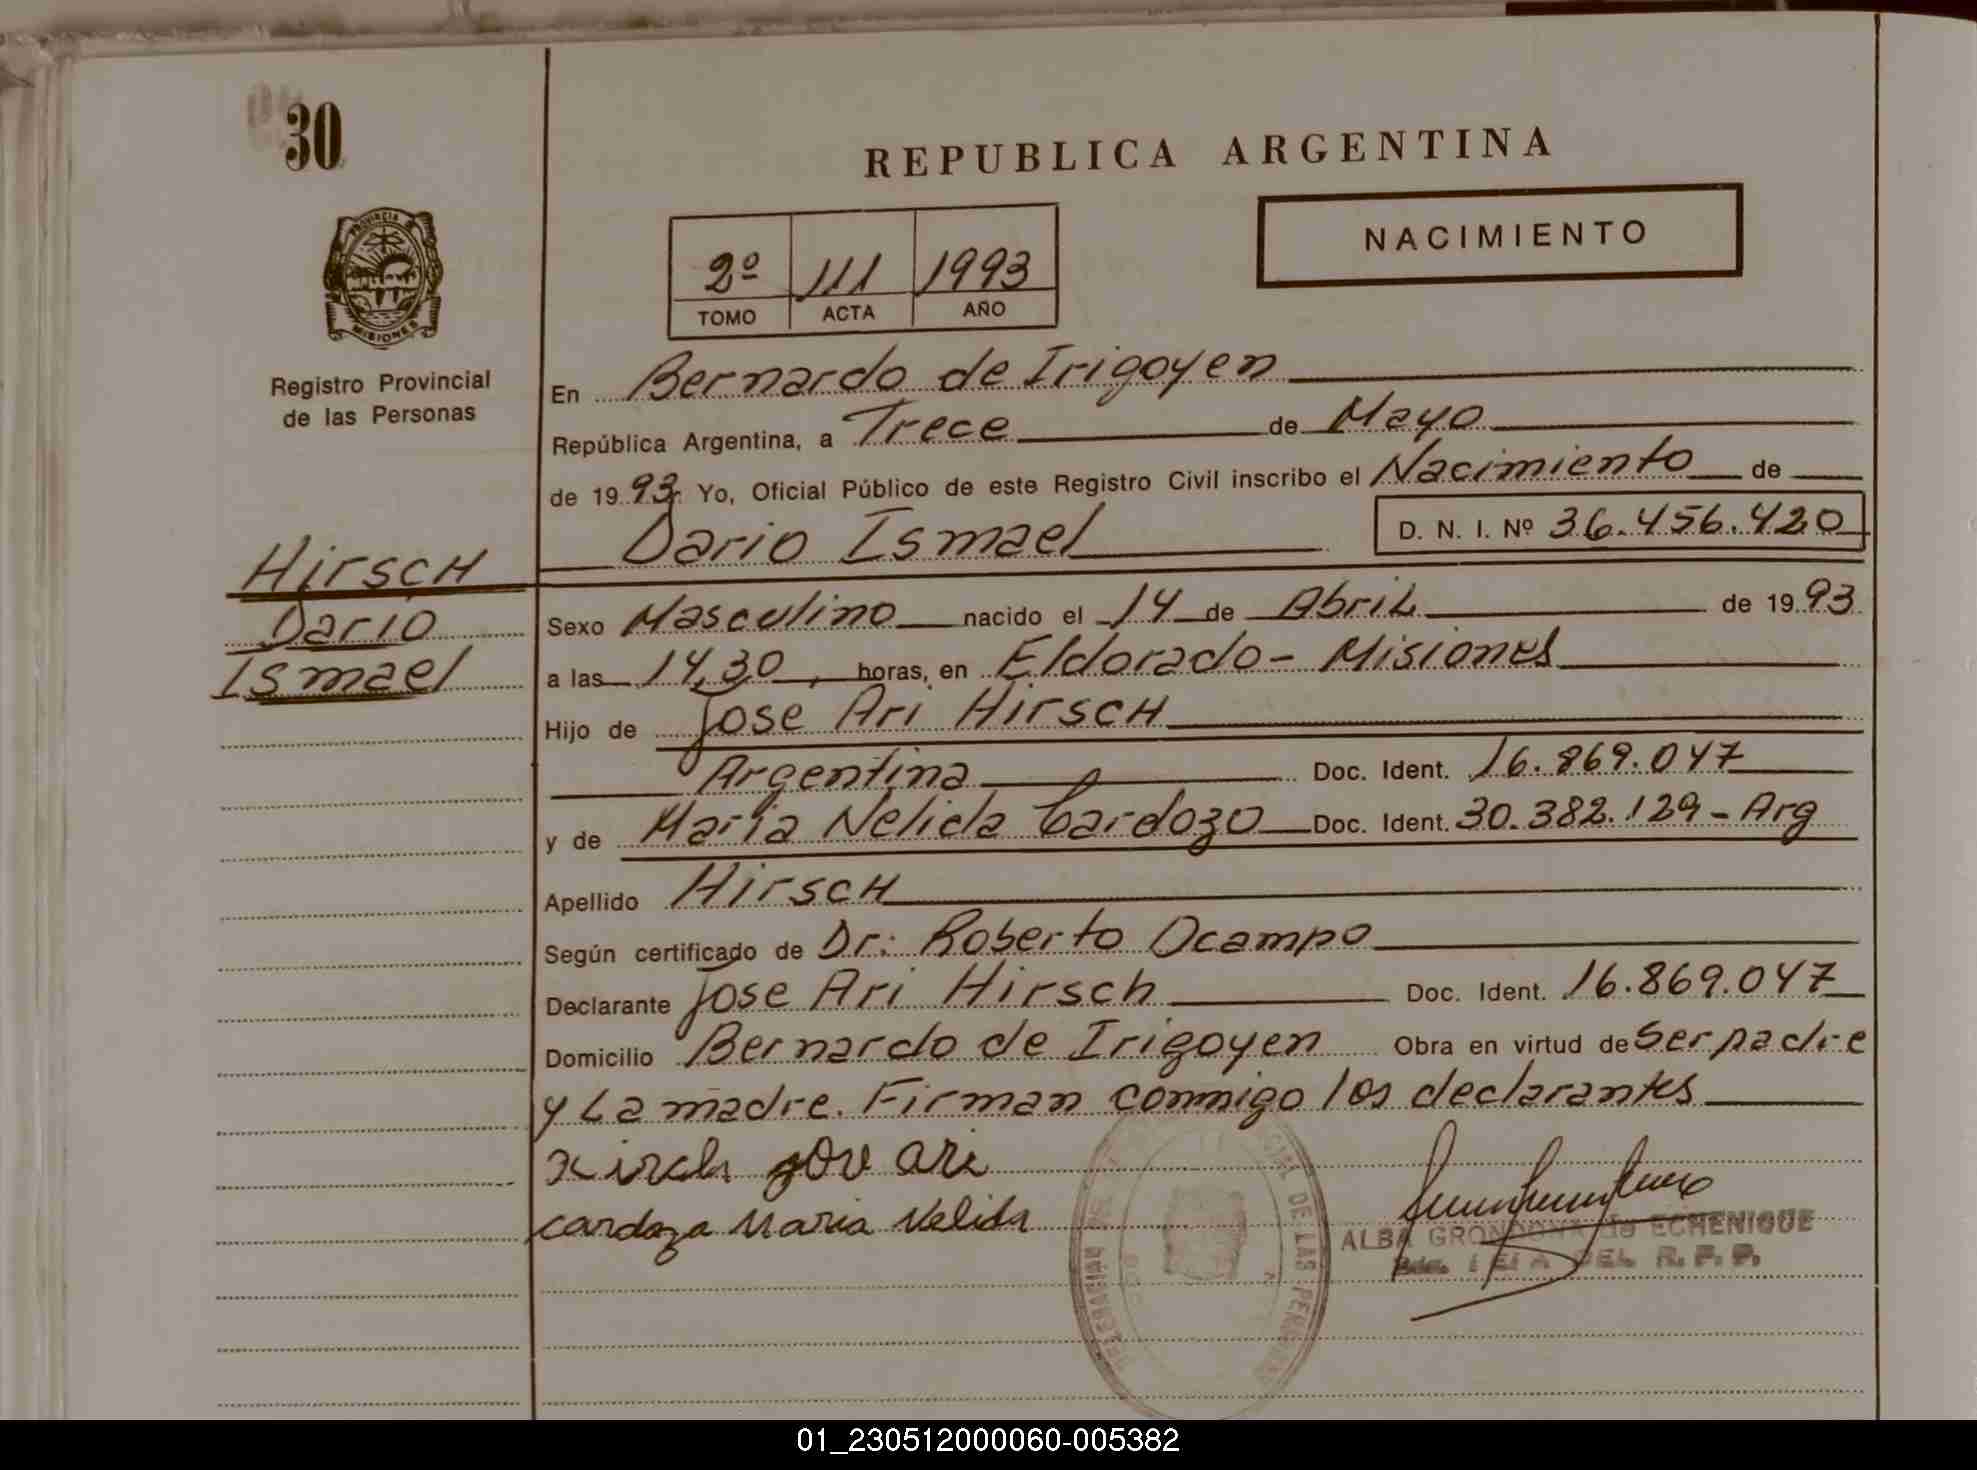 30
REPUBLICA ARGENTINA
NACIMIENTO
2º 111 1993
TOMO ACTA AÑO
PROVINCIA DE
MISIONES
Registro Provincial
de las Personas
En Bernardo de Irigoyen
República Argentina, a Trece de Mayo
de 19 93. Yo, Oficial Público de este Registro Civil inscribo el Nacimiento de
Dario Ismael D. N. I. Nº 36.456.420
Hirsch
Dario
Ismael
Sexo Masculino nacido el 14 de Abril de 19 93
a las 14,30, horas, en Eldorado - Misiones
Hijo de Jose Ari Hirsch
Argentina Doc. Ident. 16.869.047
y de Maria Nelida Cardozo Doc. Ident. 30.382.129 - Arg
Apellido Hirsch
Según certificado de Dr: Roberto Ocampo
Declarante Jose Ari Hirsch Doc. Ident. 16.869.047
Domicilio Bernardo de Irigoyen Obra en virtud de Ser padre
y La madre. Firman conmigo los declarantes
Ari
Cardozo Maria Nelida
ALBA GRONDONA de ECHENIQUE
DEL R. P. P.
DE LAS PERSONAS
01_230512000060-005382